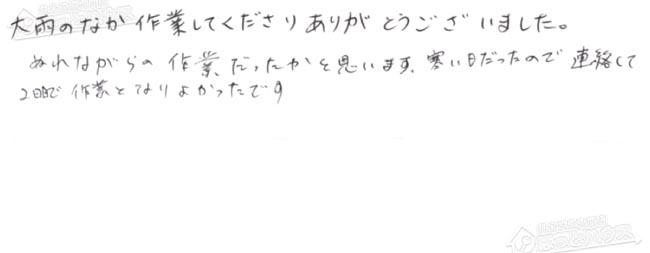 大雨のなか作業してくださりありがとうございました。
ぬれながらの作業だったかと思います。寒い日だったので連絡して
2日目で作業となりよかったです